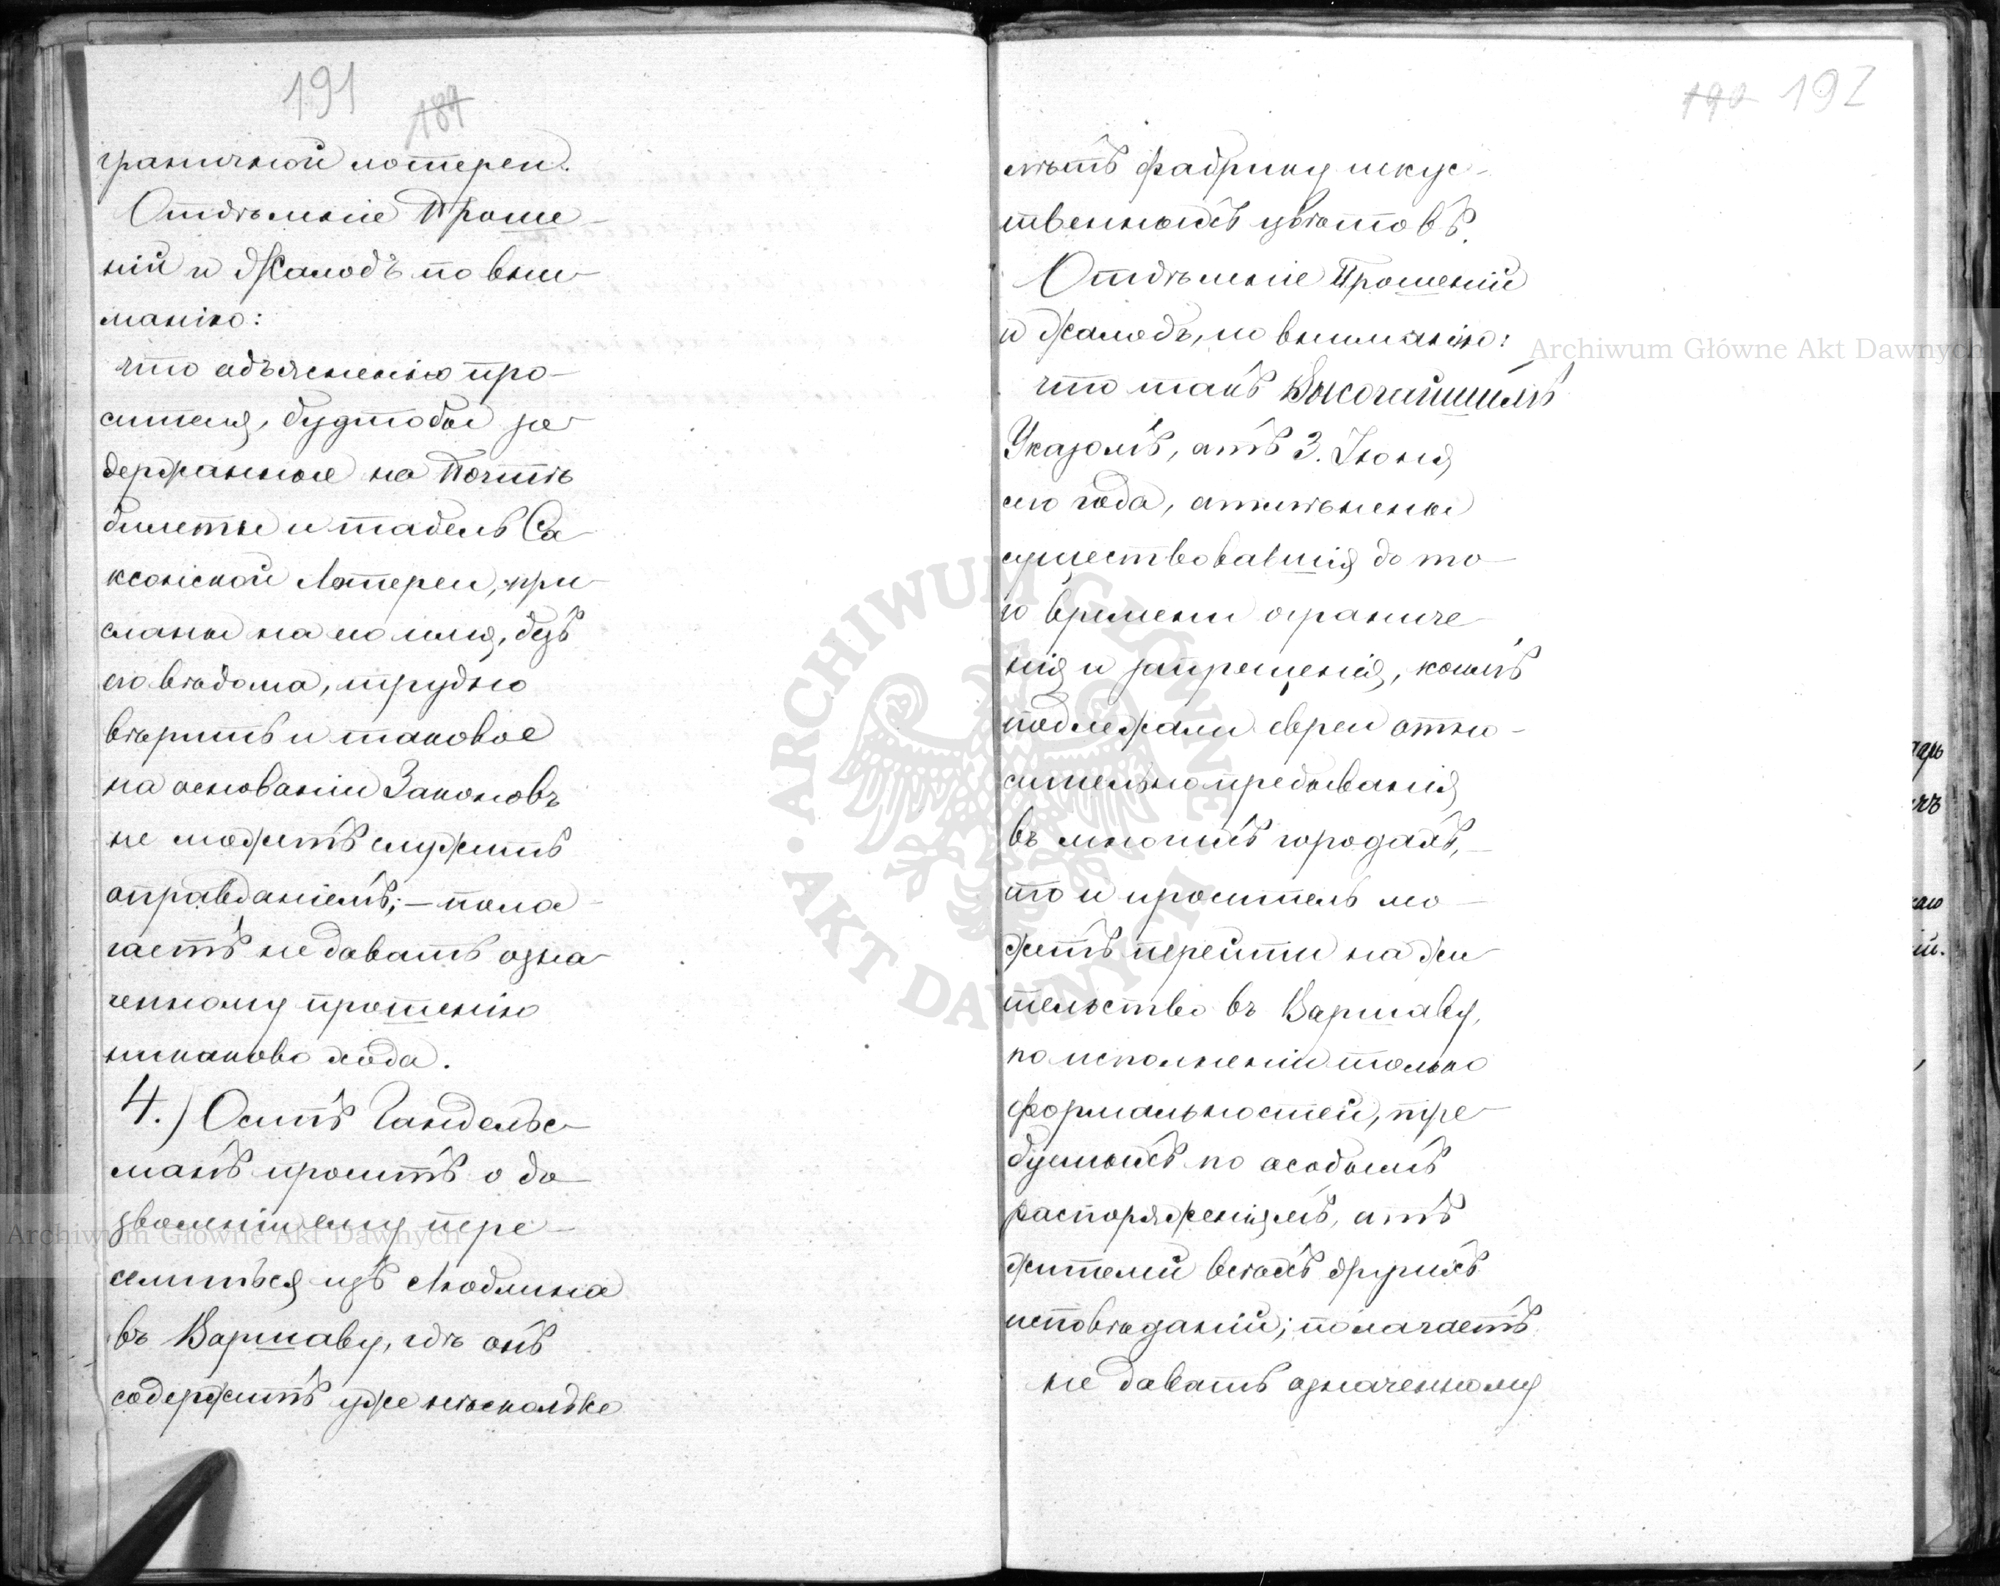 191
189
граничной лотереи.
Отдѣленіе Проше-
ній и Жалобъ по вни-
манію:
что объясненію про-
сителя, будтобы за-
держанные на Почтѣ
билеты и табель Са-
ксонской Лотереи, при-
сланы на его имя, безъ
его вѣдома, трудно
вѣрить и таковое
на основаніи Законовъ
не можетъ служить
оправданіемъ; — пола-
гаетъ не давать озна-
ченному прошенію
никакова хода.
4.) Осипъ Гандельс-
манъ проситъ о до-
зволеніи ему пере-
селиться изъ Люблина
въ Варшаву, гдѣ онъ
содержитъ уже нѣсколько
190 192
лѣтъ фабрику искус-
твенныхъ цвѣтовъ.
Отдѣленіе Прошеній
и Жалобъ, по вниманію:
что такъ Высочайшимъ
Указомъ, отъ 3. Іюня
сего года, отмѣнены
существовавшія до то-
го времени ограниче-
нія и запрещенія, коимъ
подлежали евреи отно-
сительно пребыванія
въ многихъ городахъ,—
то и проситель мо-
жетъ перейти на жи-
тельство въ Варшаву,
по исполненіи только
формальностей, тре-
буемыхъ по особымъ
распоряженіямъ, отъ
жителей всѣхъ другихъ
исповѣданій; полагаетъ
не давать означенному
Archiwum Główne Akt Dawnych
Archiwum Główne Akt Dawnych
ARCHIWUM GŁÓWNE • AKT DAWNYCH •